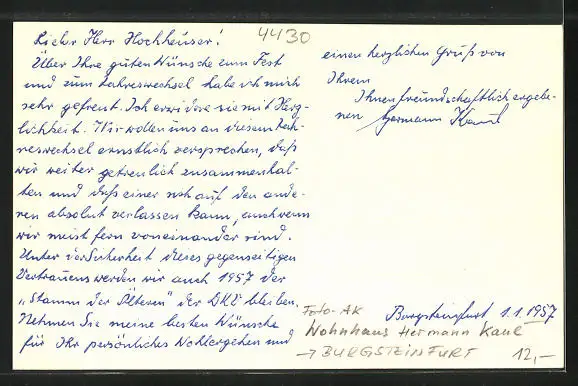 Lieber Herr Hochhäuser!
4430
Über Ihre guten Wünsche zum Fest
und zum Jahreswechsel habe ich mich
sehr gefreut. Ich erwidere sie mit Herz-
lichkeit. Wir wollen uns an diesem Jah-
reswechsel ernstlich versprechen, daß
wir weiter getreulich zusammenhal-
ten und daß einer sich auf den ande-
ren absolut verlassen kann, auch wenn
wir meist fern voneinander sind.
Unter der Sicherheit dieses gegenseitigen
Vertrauens werden wir auch 1957 der
„Stamm der Älteren" der bleiben.
Nehmen Sie meine besten Wünsche
für Ihr persönliches Wohlergehen und
einen herzlichen Gruß von
Ihrem
Ihnen freundschaftlich ergebe-
nen Hermann
Burgsteinfurt 1.1.1957
Foto-AK
Wohnhaus Hermann
→ BURGSTEINFURT 12,—